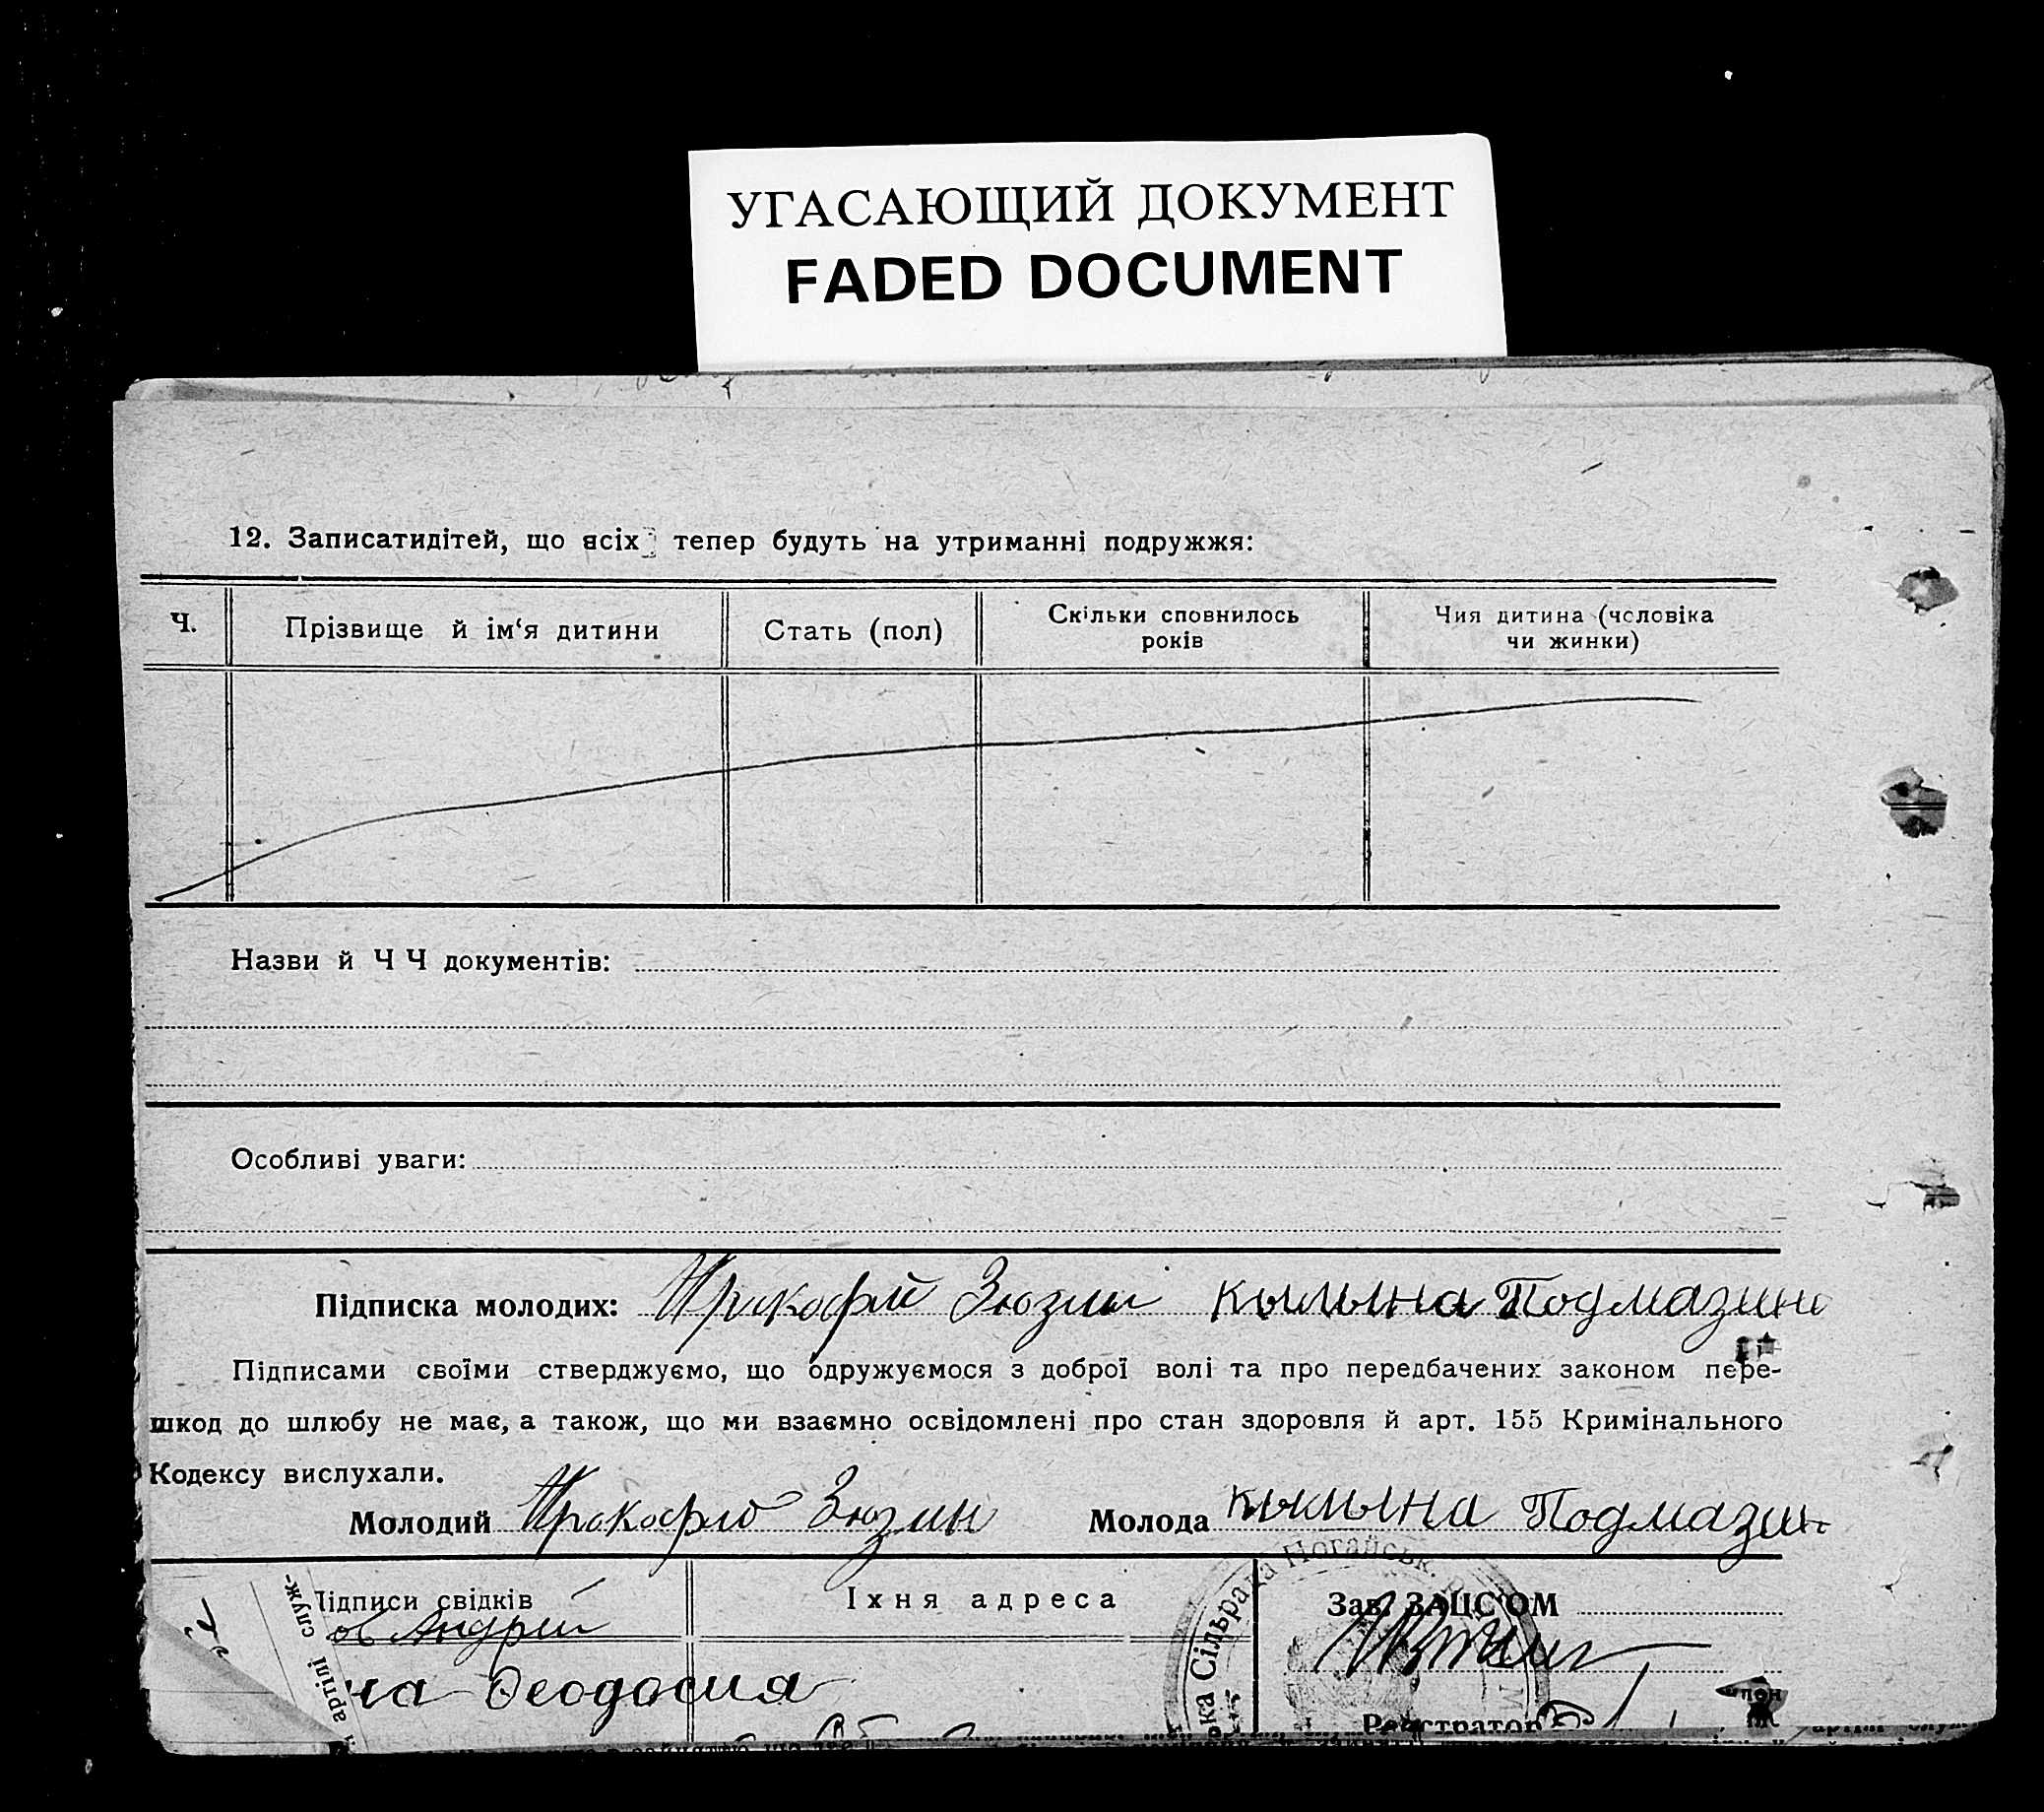 УГАСАЮЩИЙ ДОКУМЕНТ
FADED DOCUMENT
12. Записатидітей, що всіх тепер будуть на утриманні подружжя:
Ч.
Прізвище й ім'я дитини
Стать (пол)
Скільки сповнилось
років
Чия дитина (чоловіка
чи жинки)
Назви й Ч Ч документів:
Особливі уваги:
Підписка молодих: Прокофій Зюзин Кылына Подмазин
Підписами своїми стверджуємо, що одружуємося з доброї волі та про передбачених законом пере-
шкод до шлюбу не має, а також, що ми взаємно освідомлені про стан здоровля й арт. 155 Кримінального
Кодексу вислухали.
Молодий Прокофію Зюзин Молода Кылына Подмазин
Підписи свідків
Їхня адреса
Зав. ЗАЦС'ОМ
ов Андрей
на Феодосия
Реєстратор
ка Сільрада Ногайськ.
артілі служ-